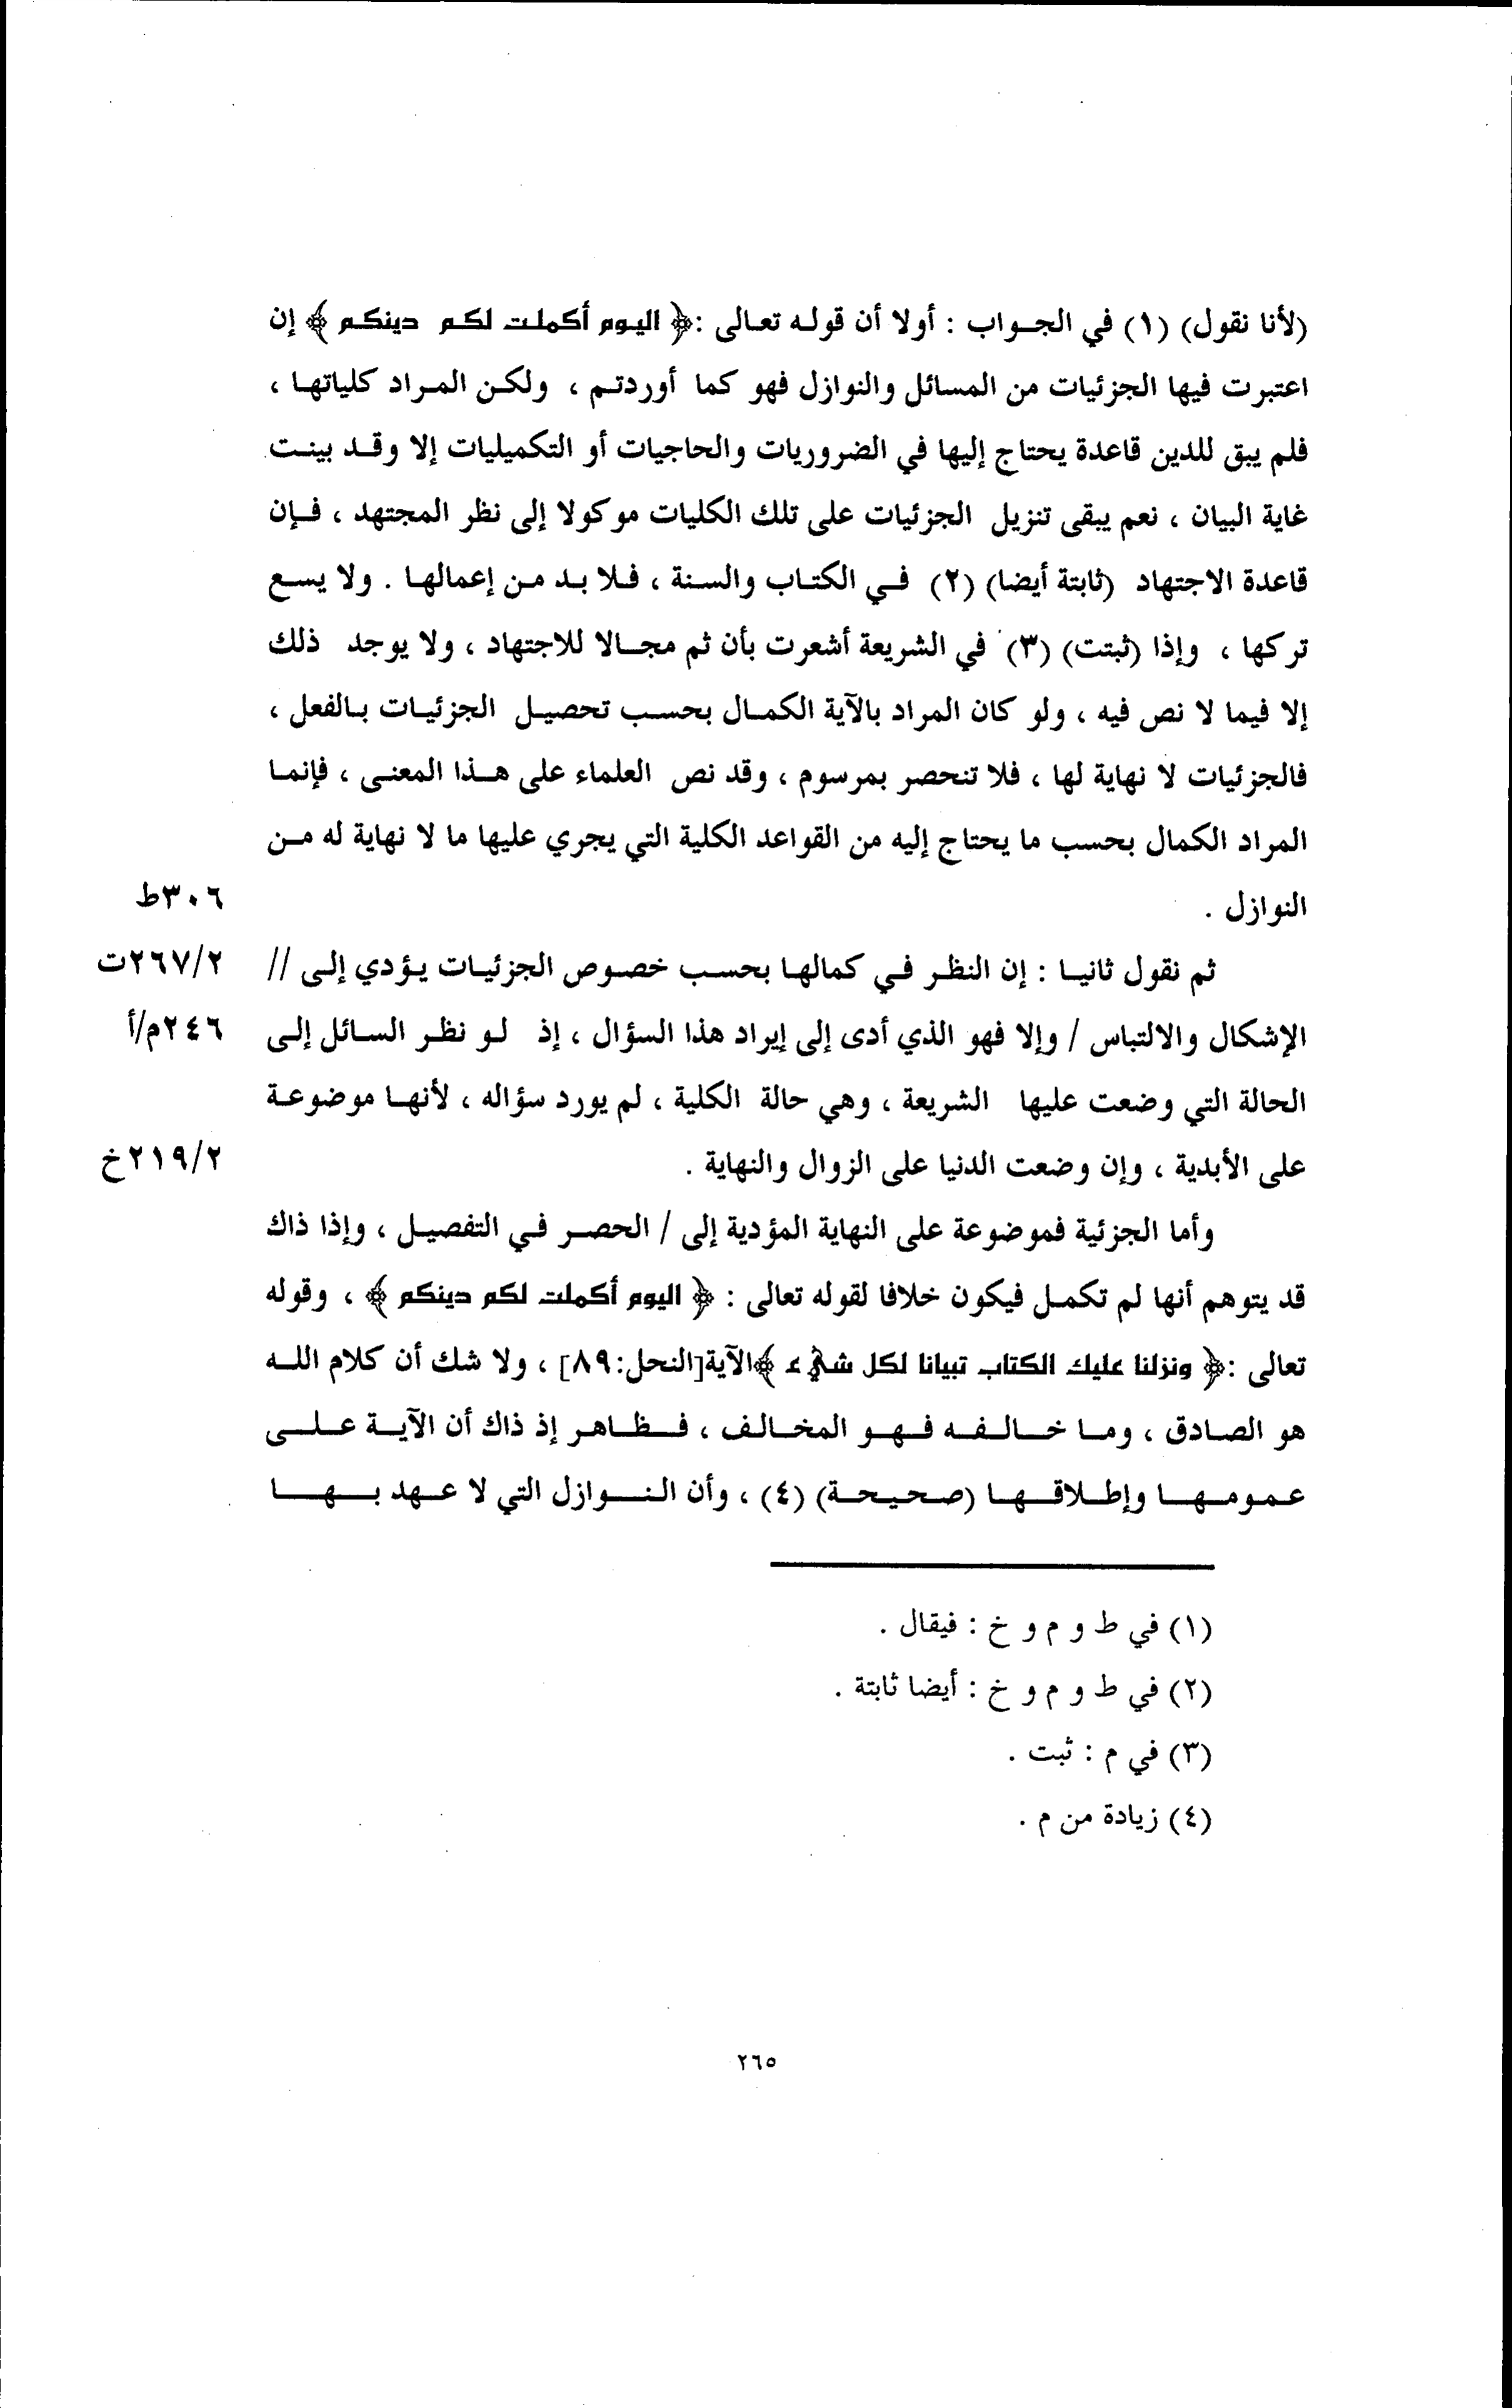 (لأنا نقول) (١) في الجواب : أولا أن قوله تعالى :﴿ اليوم أكملت لكم دينكم ﴾ إن
اعتبرت فيها الجزئيات من المسائل والنوازل فهو كما أوردتم ، ولكن المراد كلياتها ،
فلم يبق للدين قاعدة يحتاج إليها في الضروريات والحاجيات أو التكميليات إلا وقد بينت
غاية البيان ، نعم يبقى تنزيل الجزئيات على تلك الكليات موكولا إلى نظر المجتهد ، فإن
قاعدة الاجتهاد (ثابتة أيضا) (٢) في الكتاب والسنة ، فلا بد من إعمالها . ولا يسع
تركها ، وإذا (ثبتت) (٣) في الشريعة أشعرت بأن ثم مجالا للاجتهاد ، ولا يوجد ذلك
إلا فيما لا نص فيه ، ولو كان المراد بالآية الكمال بحسب تحصيل الجزئيات بالفعل ،
فالجزئيات لا نهاية لها ، فلا تنحصر بمرسوم ، وقد نص العلماء على هذا المعنى ، فإنما
المراد الكمال بحسب ما يحتاج إليه من القواعد الكلية التي يجري عليها ما لا نهاية له من
النوازل .
٣٠٦ط
ثم نقول ثانيا : إن النظر في كمالها بحسب خصوص الجزئيات يؤدي إلى //
٢٦٧/٢ت
الإشكال والالتباس / وإلا فهو الذي أدى إلى إيراد هذا السؤال ، إذ لو نظر السائل إلى
٢٤٦م/أ
الحالة التي وضعت عليها الشريعة ، وهي حالة الكلية ، لم يورد سؤاله ، لأنها موضوعة
على الأبدية ، وإن وضعت الدنيا على الزوال والنهاية .
٢١٩/٢خ
وأما الجزئية فموضوعة على النهاية المؤدية إلى / الحصر في التفصيل ، وإذا ذاك
قد يتوهم أنها لم تكمل فيكون خلافا لقوله تعالى : ﴿ اليوم أكملت لكم دينكم ﴾ ، وقوله
تعالى :﴿ ونزلنا عليك الكتاب تبيانا لكل شيء ﴾الآية[النحل:٨٩] ، ولا شك أن كلام الله
هو الصادق ، وما خالفه فهو المخالف ، فظاهر إذ ذاك أن الآية على
عمومها وإطلاقها (صحيحة) (٤) ، وأن النوازل التي لا عهد بها
(١) في ط و م و خ : فيقال .
(٢) في ط و م و خ : أيضا ثابتة .
(٣) في م : ثبت .
(٤) زيادة من م .
٢٦٥